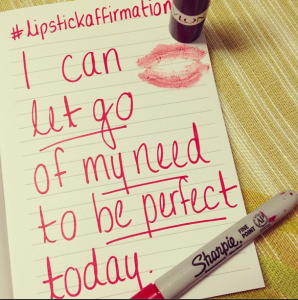 #Lipstickaffirmation
I can
let go
of my need
to be perfect
today.
REVLON
Sharpie
FINE
POINT
AP